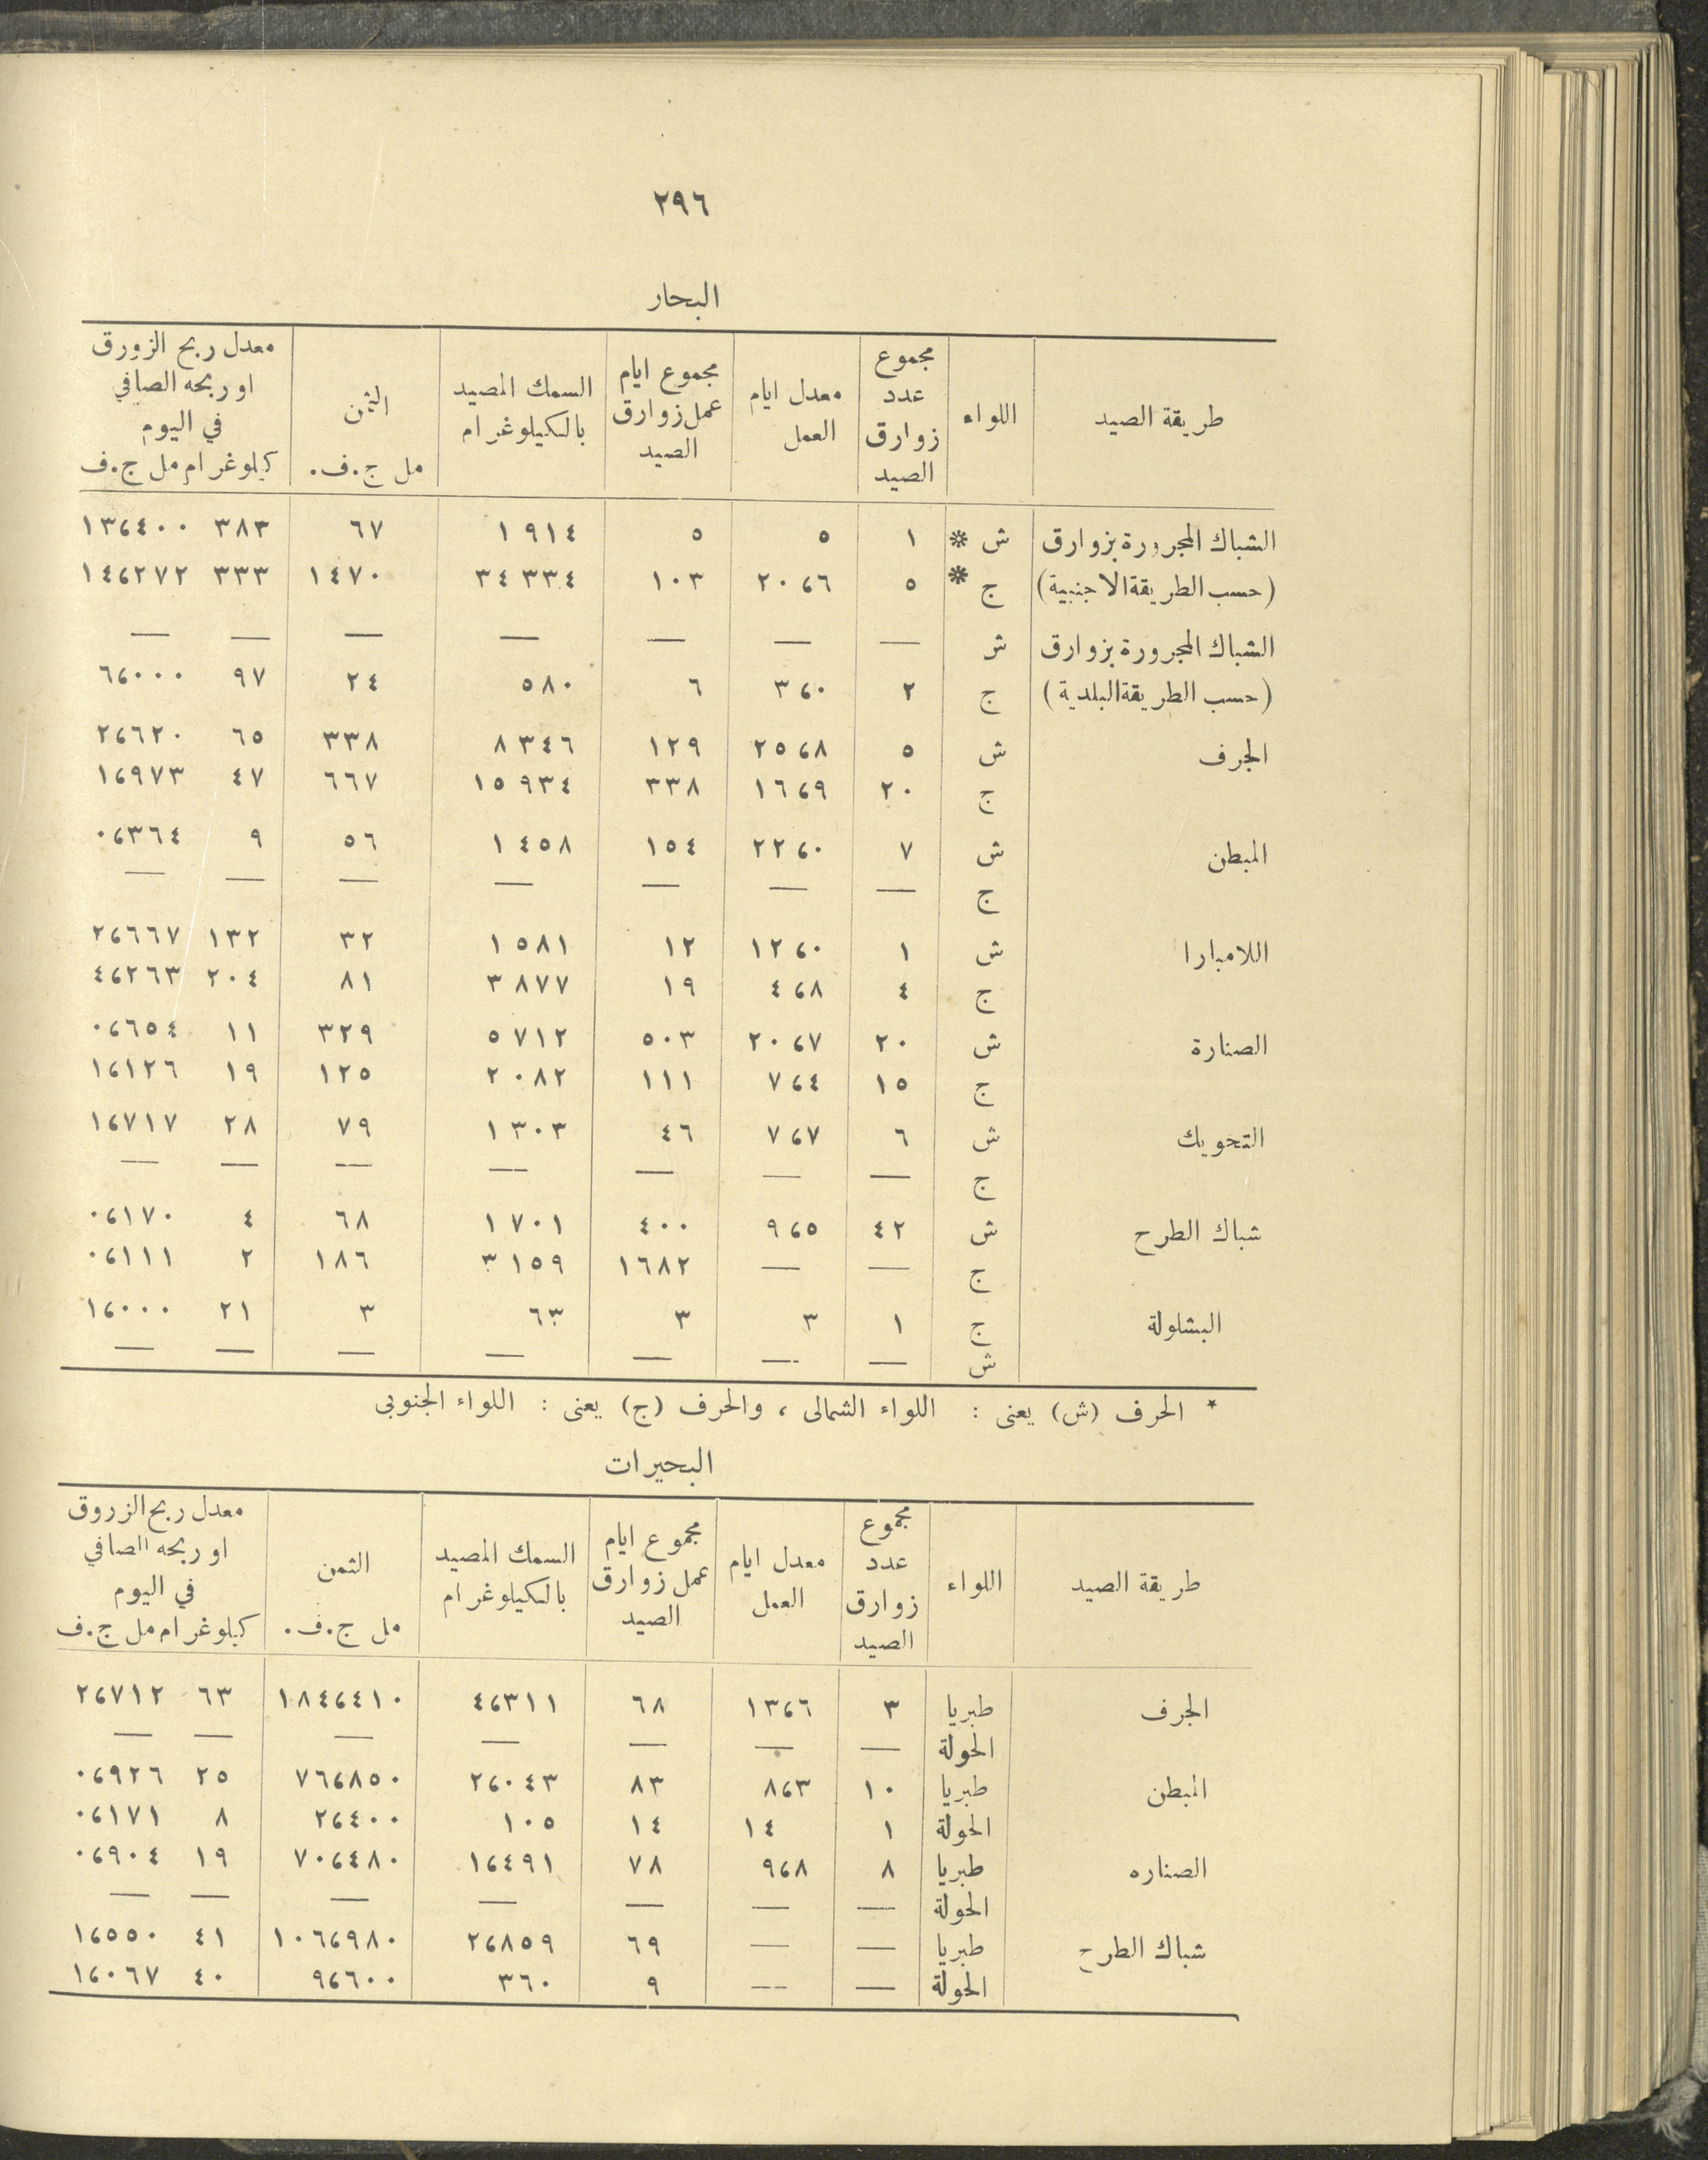 ٢٩٦
البحار
طريقة الصيد | اللواء | مجموع عدد زوارق الصيد | معدل ايام العمل | مجموع ايام عمل زوارق الصيد | السمك المصيد بالكيلوغرام | الثمن مل ج.ف. | معدل ربح الزورق او ربحه الصافي في اليوم كيلوغرام مل ج.ف
الشباك المجرورة بزوارق ش * ١ ٥ ٥ ١٩١٤ ٦٧ ٣٨٣ ١٣،٤٠٠
(حسب الطريقة الاجنبية) ج * ٥ ٢٠،٦ ١٠٣ ٣٤٣٣٤ ١٤٧٠ ٣٣٣ ١٤،٢٧٢
الشباك المجرورة بزوارق ش — — — — — — —
(حسب الطريقة البلدية) ج ٢ ٣،٠ ٦ ٥٨٠ ٢٤ ٩٧ ٦،٠٠٠
الجرف ش ٥ ٢٥،٨ ١٢٩ ٨٣٤٦ ٣٣٨ ٦٥ ٢،٦٢٠
ج ٢٠ ١٦،٩ ٣٣٨ ١٥٩٣٤ ٦٦٧ ٤٧ ١،٩٧٣
المبطن ش ٧ ٢٢،٠ ١٥٤ ١٤٥٨ ٥٦ ٩ ٠،٣٦٤
ج — — — — — — —
اللامبارا ش ١ ١٢،٠ ١٢ ١٥٨١ ٣٢ ١٣٢ ٢،٦٦٧
ج ٤ ٤،٨ ١٩ ٣٨٧٧ ٨١ ٢٠٤ ٤،٢٦٣
الصنارة ش ٢٠ ٢٠،٧ ٥٠٣ ٥٧١٢ ٣٢٩ ١١ ٠،٦٥٤
ج ١٥ ٧،٤ ١١١ ٢٠٨٢ ١٢٥ ١٩ ١،١٢٦
التحويك ش ٦ ٧،٧ ٤٦ ١٣٠٣ ٧٩ ٢٨ ١،٧١٧
ج — — — — — — —
شباك الطرح ش ٤٢ ٩،٥ ٤٠٠ ١٧٠١ ٦٨ ٤ ٠،١٧٠
ج — — ١٦٨٢ ٣١٥٩ ١٨٦ ٢ ٠،١١١
البشلولة ج ١ ٣ ٣ ٦٣ ٣ ٢١ ١،٠٠٠
ش — — — — — — —
* الحرف (ش) يعنى : اللواء الشمالى ، والحرف (ج) يعنى : اللواء الجنوبى
البحيرات
طريقة الصيد | اللواء | مجموع عدد زوارق الصيد | معدل ايام العمل | مجموع ايام عمل زوارق الصيد | السمك المصيد بالكيلوغرام | الثمن مل ج.ف. | معدل ربح الزروق او ربحه الصافي في اليوم كيلوغرام مل ج.ف
الجرف طبريا ٣ ١٣،٦ ٦٨ ٤،٣١١ ١٨٤،٤١٠ ٦٣ ٢،٧١٢
الحولة — — — — — — —
المبطن طبريا ١٠ ٨،٣ ٨٣ ٢،٠٤٣ ٧٦،٨٥٠ ٢٥ ٠،٩٢٦
الحولة ١ ١٤ ١٤ ١٠٥ ٢،٤٠٠ ٨ ٠،١٧١
الصناره طبريا ٨ ٩،٨ ٧٨ ١،٤٩١ ٧٠،٤٨٠ ١٩ ٠،٩٠٤
الحولة — — — — — — —
شباك الطرح طبريا — — ٦٩ ٢،٨٥٩ ١٠٦،٩٨٠ ٤١ ١،٥٥٠
الحولة — — ٩ ٣٦٠ ٩،٦٠٠ ٤٠ ١،٠٦٧